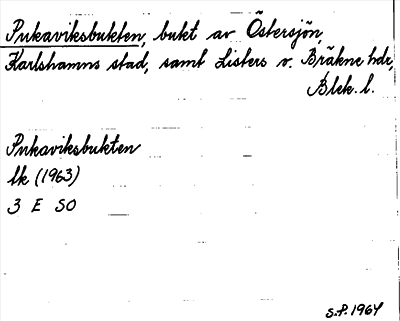 Pukaviksbukten, bukt av Östersjön,
Karlshamns stad, samt Listers o. Bräkne hdr,
Blek. l.
Pukaviksbukten
lk (1963)
3 E SO
S.P. 1964